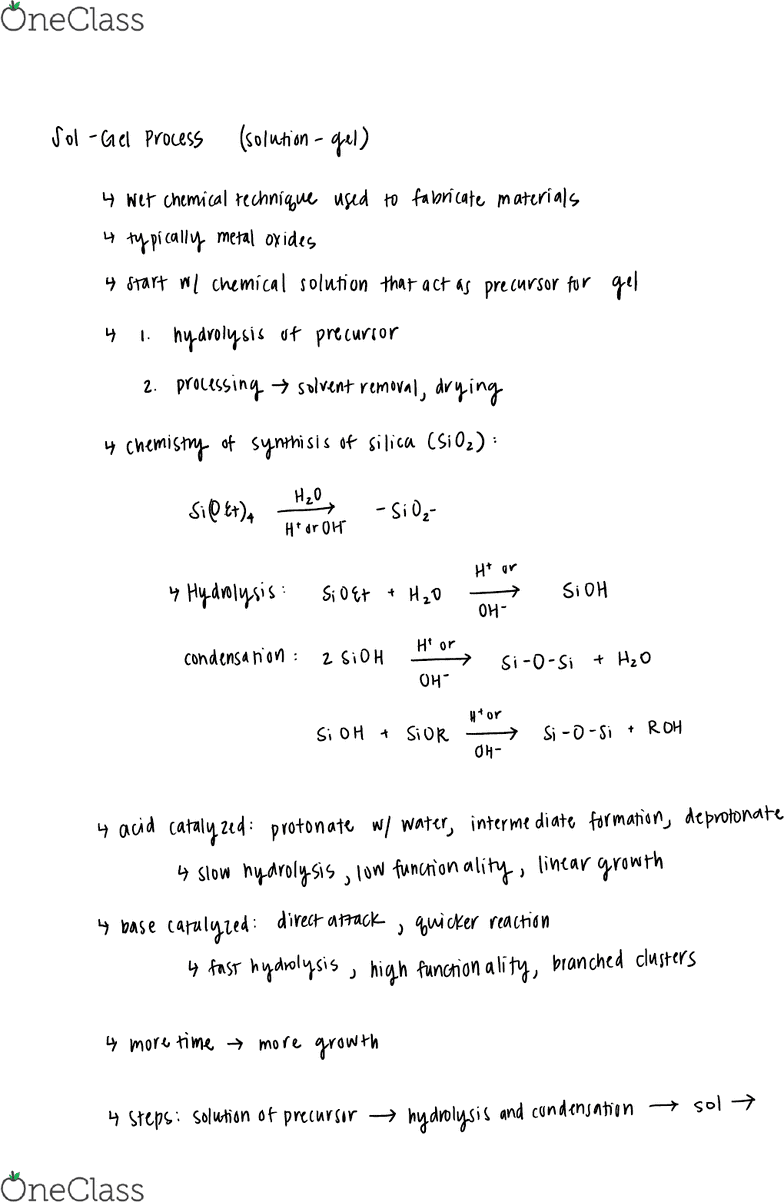 OneClass
Sol-Gel Process (solution-gel)
↳ wet chemical technique used to fabricate materials
↳ typically metal oxides
↳ start w/ chemical solution that act as precursor for gel
↳ 1. hydrolysis of precursor
2. processing → solvent removal, drying
↳ chemistry of synthisis of silica (SiO₂):
Si(OEt)₄ H₂O / H⁺ or OH⁻ → -SiO₂-
↳ Hydrolysis: SiOEt + H₂O H⁺ or OH⁻ → SiOH
condensation: 2 SiOH H⁺ or OH⁻ → Si-O-Si + H₂O
SiOH + SiOR H⁺ or OH⁻ → Si-O-Si + ROH
↳ acid catalyzed: protonate w/ water, intermediate formation, deprotonate
↳ slow hydrolysis, low functionality, linear growth
↳ base catalyzed: direct attack, quicker reaction
↳ fast hydrolysis, high functionality, branched clusters
↳ more time → more growth
↳ steps: solution of precursor → hydrolysis and condensation → sol →
OneClass